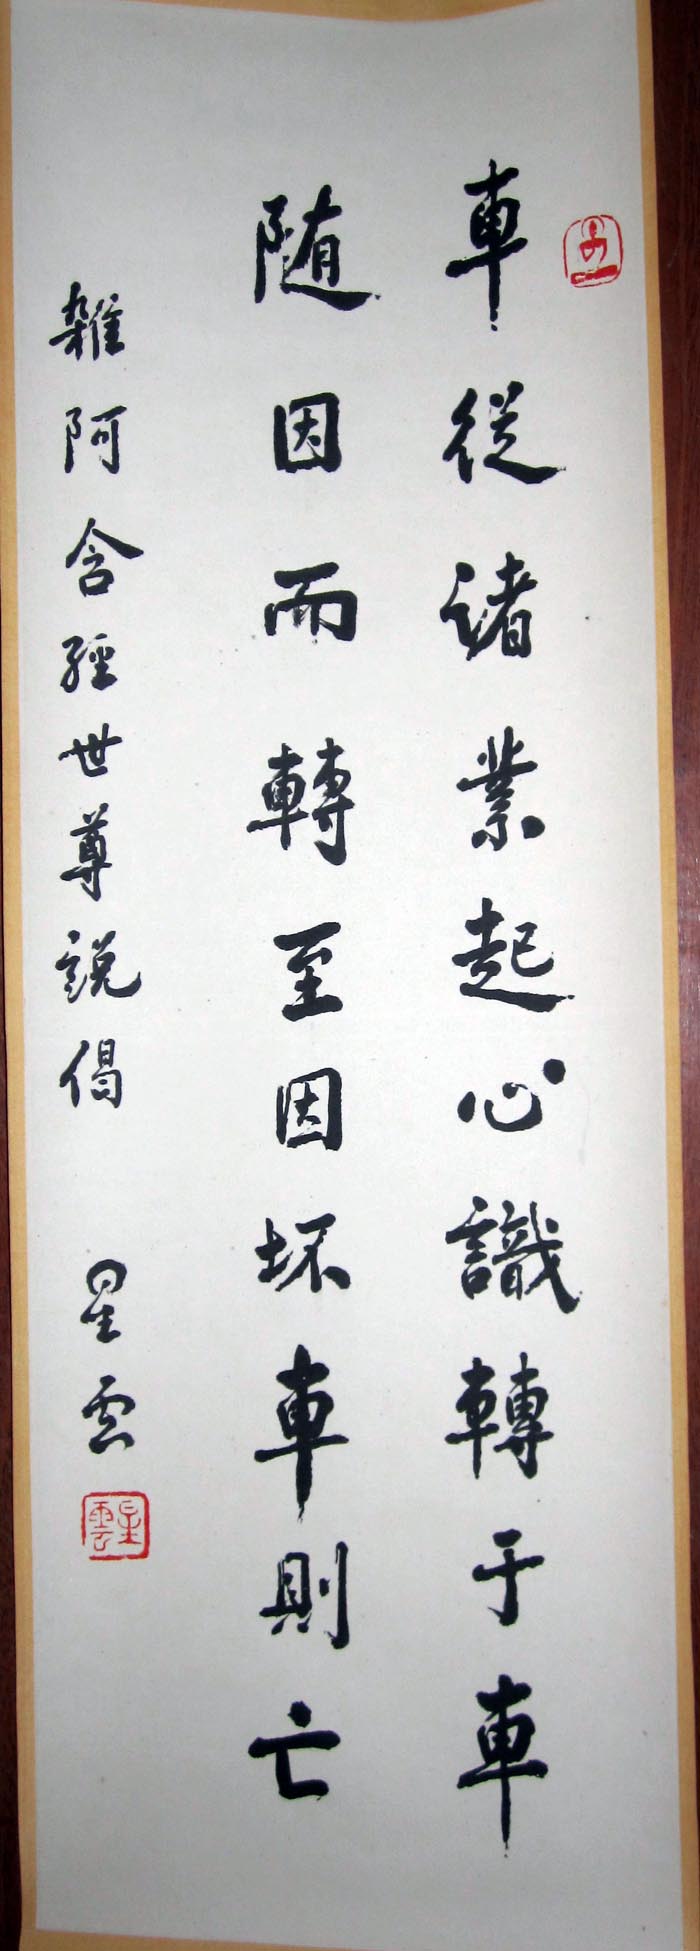 車從诸業起心識轉于車
随因而轉至因坏車則亡
雜阿含經世尊説偈 星雲
星雲